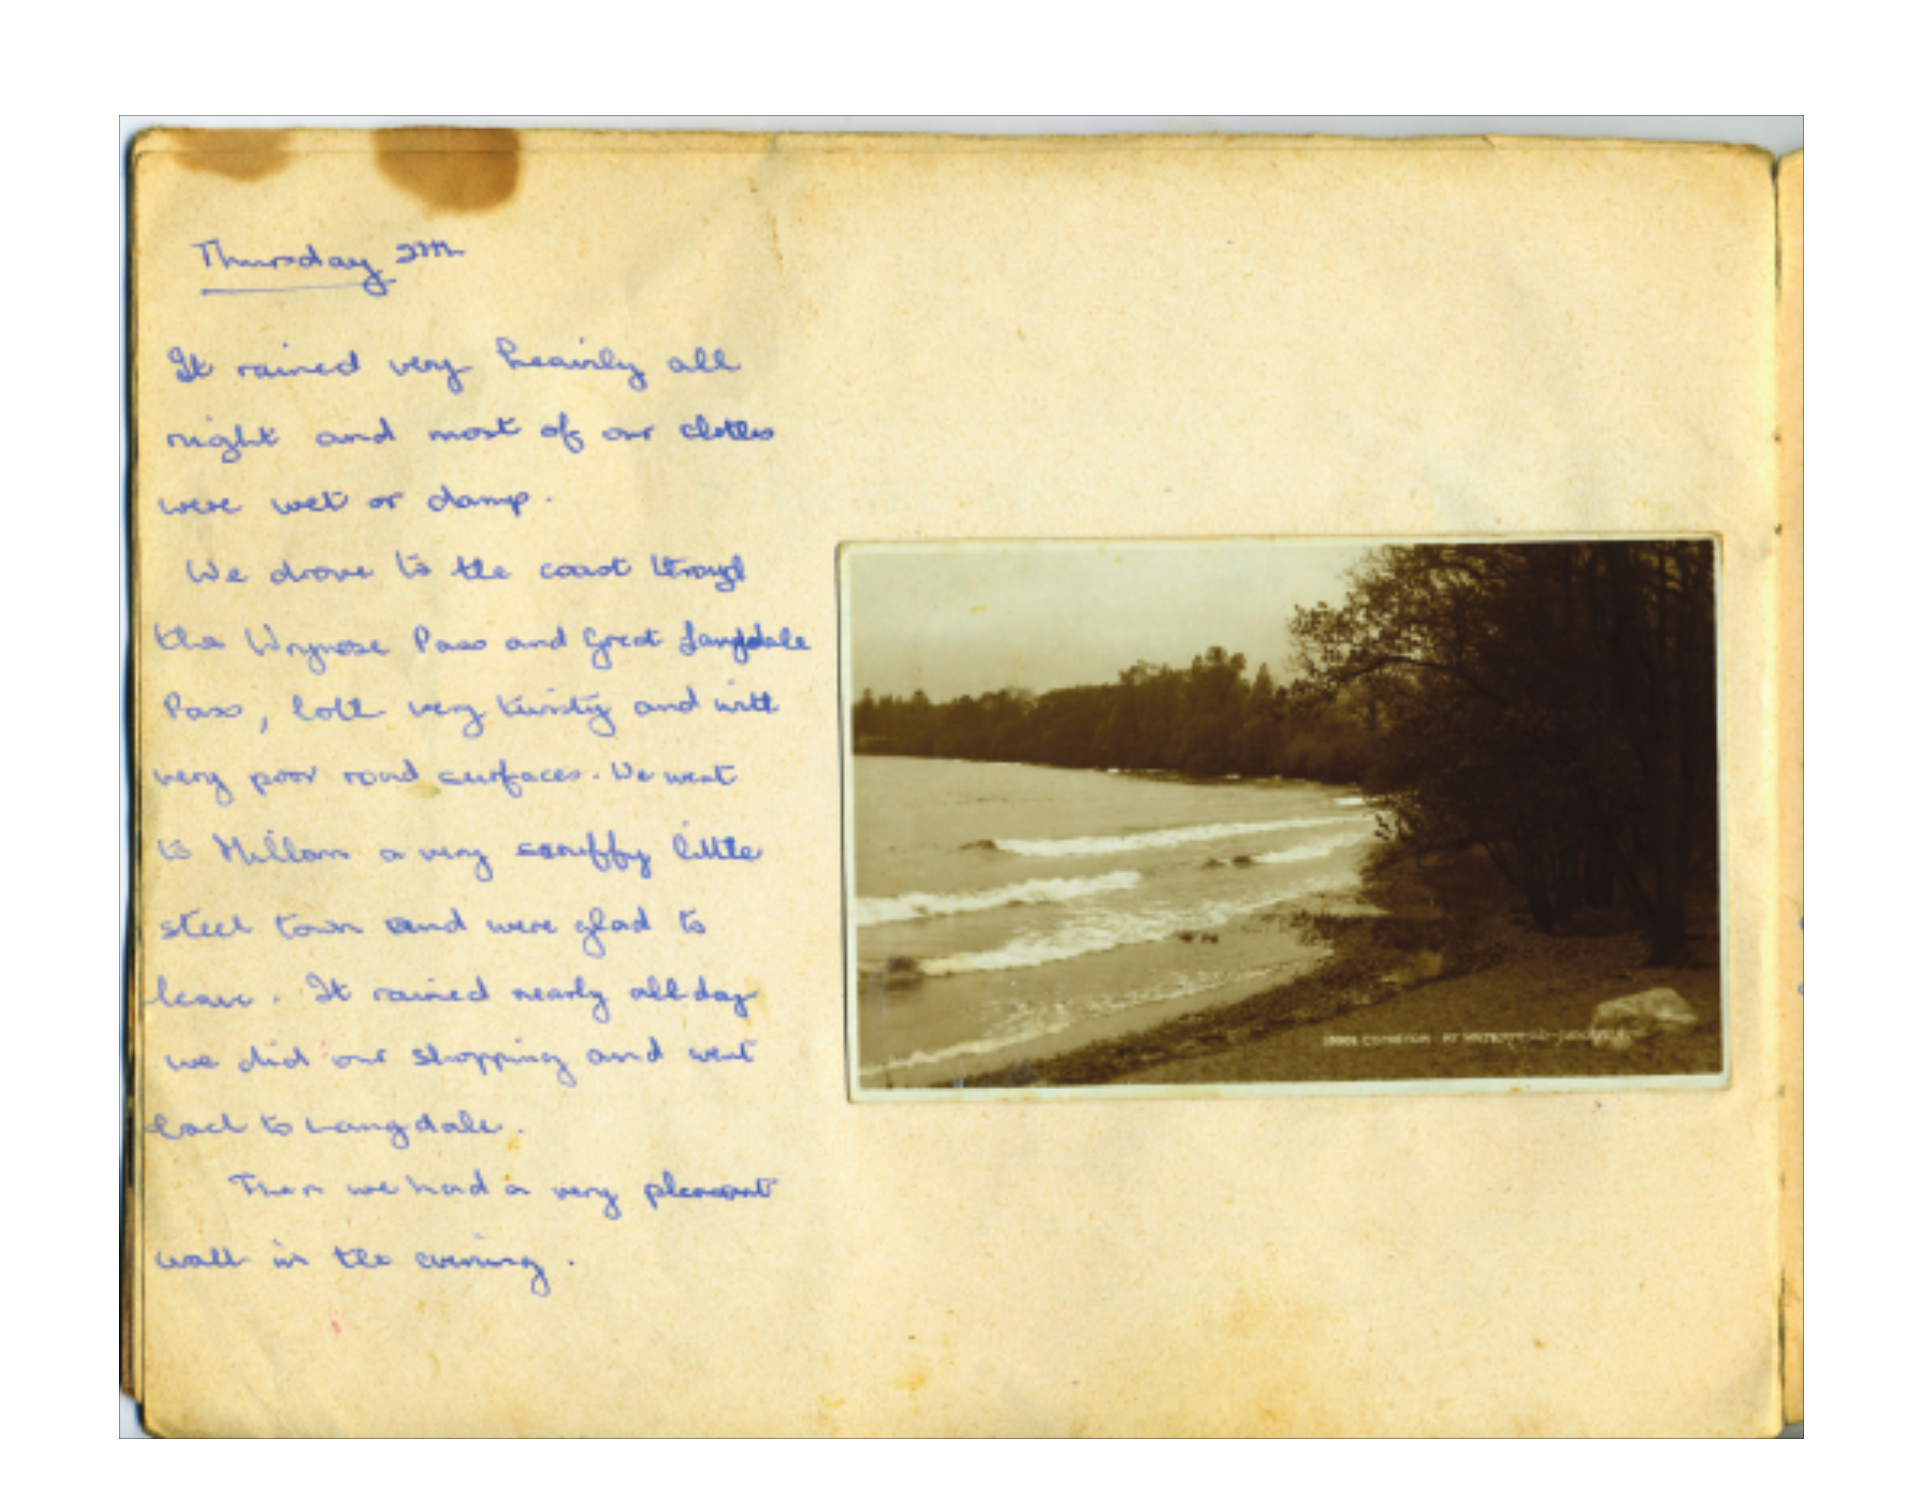 Thursday
It rained very heavily all
night and most of our clothes
were wet or damp.
We drove to the coast through
the Wrynose Pass and Great Langdale
Pass, both very twisty and with
very poor road surfaces. We went
to Millom a very scruffy little
steel town and were glad to
leave. It rained nearly all day
we did our shopping and went
back to Langdale.
Then we had a very pleasant
walk in the evening.
CONISTON AT WATERHEAD